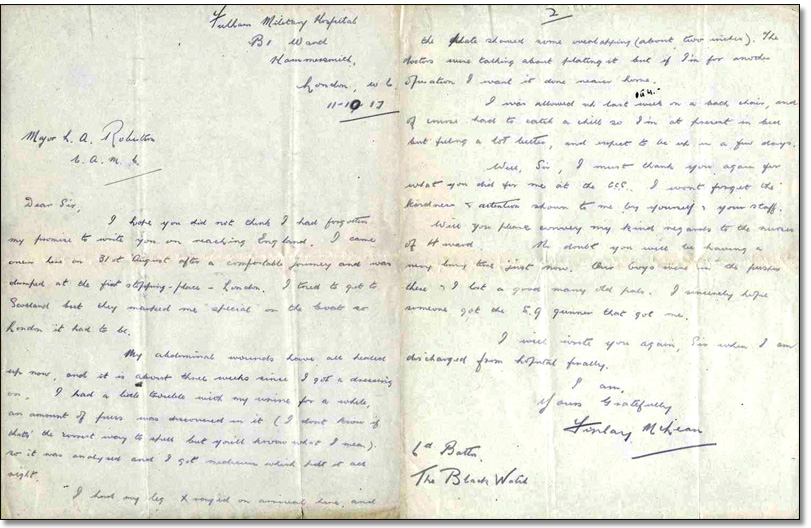 Fulham Military Hospital
B1 Ward
Hammersmith,
London, W6
11-10 17
Major L. A. Robertson
C. A. M. C.
Dear Sir,
I hope you did not think I had forgotten
my promise to write you on reaching England. I came
over here on 31st August after a comfortable journey and was
dumped at the first stopping-place - London. I tried to get to
Scotland but they marked me special on the boat so
London it had to be.
My abdominal wounds have all healed
up now, and it is about three weeks since I got a dressing
on. I had a little trouble with my urine for a while,
an amount of puss was discovered in it (I don't know if
that's the correct way to spell but you'll know what I mean).
so it was analysed and I got medicine which put it all
right.
I had my leg X rayed on arrival here, and
2
the plate showed some overlapping (about two inches). The
doctors were talking about plating it but if I'm for another
operation I want it done nearer home.
I was allowed up last week on a back chair, and
of course had to catch a chill so I'm at present in bed
but feeling a lot better, and expect to be up in a few days.
Well, Sir, I must thank you again for
what you did for me at the CCS. I won't forget the
kindness & attention shown to me by yourself & your staff.
Will you please convey my kind regards to the nurses
of 4 ward. No doubt you will be having a
very busy time just now. Our boys were in the
there & I lost a good many old pals. I sincerely hope
someone got the gunner that got me.
I will write you again, Sir when I am
discharged from hospital finally.
I am,
Yours Gratefully
Finlay McLean
6th Battn.
The Black Watch